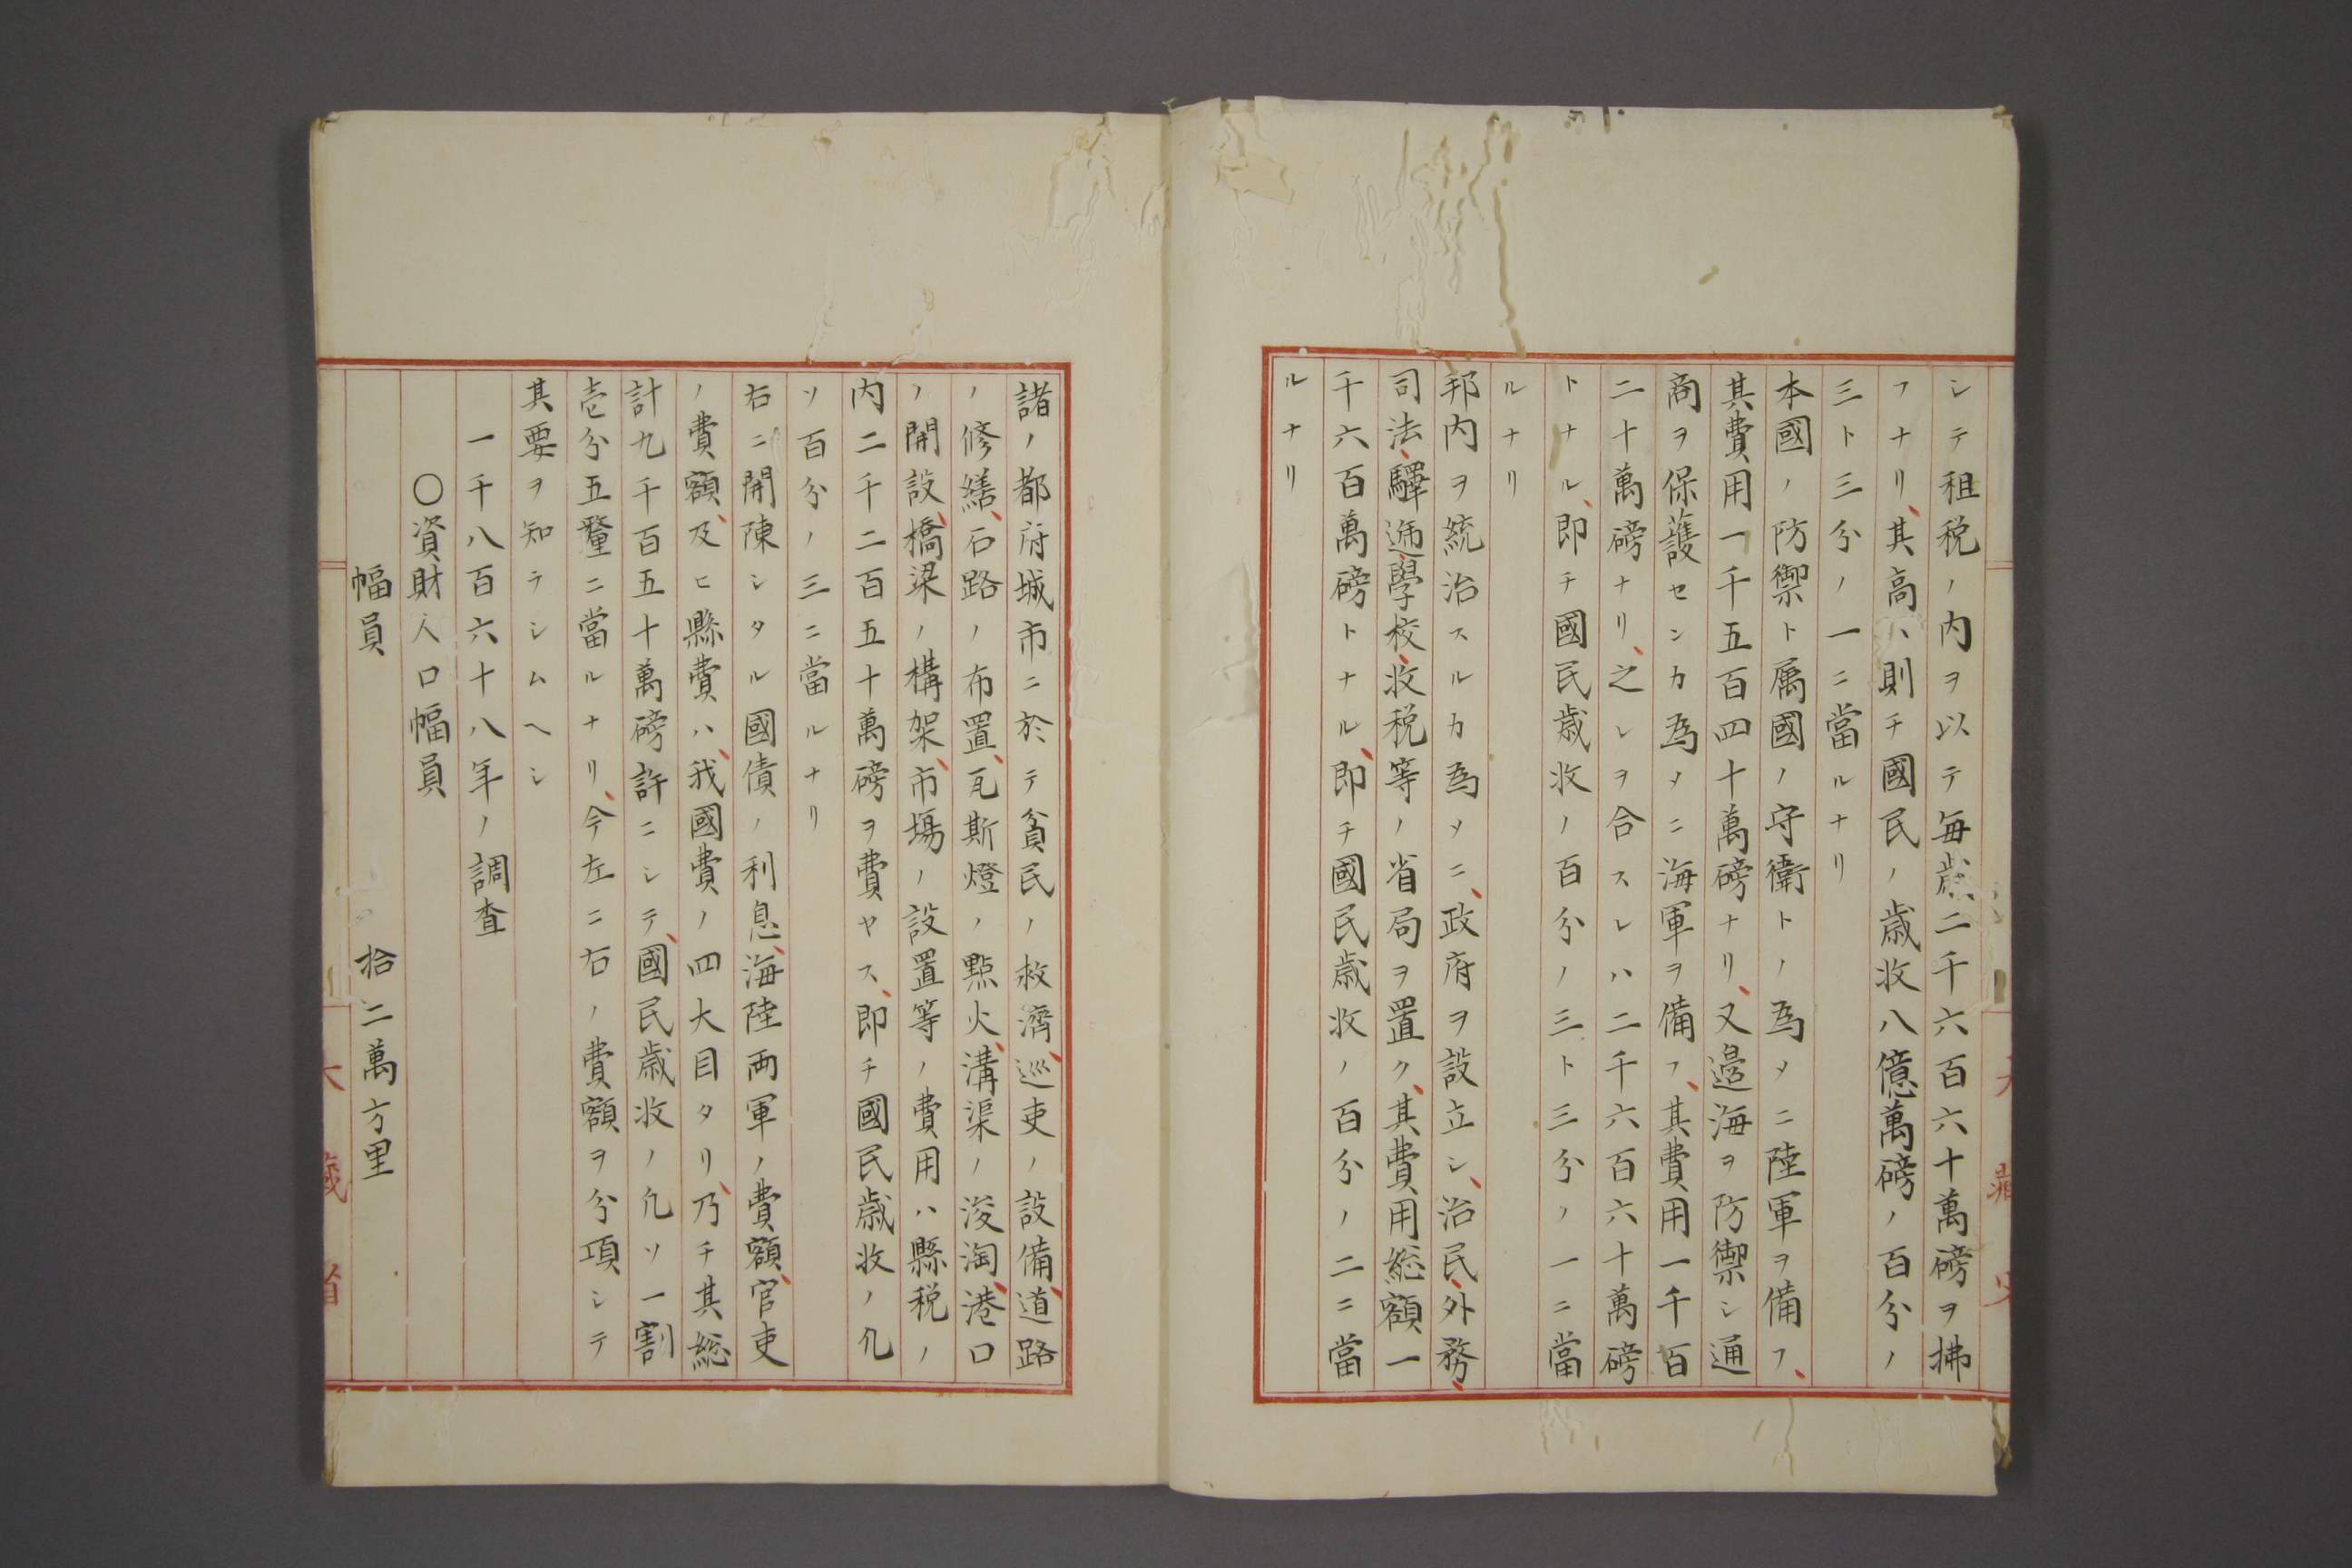 シテ租税ノ内ヲ以テ毎歳二千六百六十萬磅ヲ拂
フナリ、其高ハ則チ國民ノ歳收八億萬磅ノ百分ノ
三ト三分ノ一ニ當ルナリ
本國ノ防禦ト属國ノ守衛トノ為メニ陸軍ヲ備フ、
其費用一千五百四十萬磅ナリ、又邉海ヲ防禦シ通
商ヲ保護センカ為メニ海軍ヲ備フ、其費用一千百
二十萬磅ナリ、之レヲ合スレハ二千六百六十萬磅
トナル、即チ國民歳收ノ百分ノ三ト三分ノ一ニ當
ルナリ
邦内ヲ統治スルカ為メニ、政府ヲ設立シ、治民、外務、
司法、驛逓、學校、收税等ノ省局ヲ置ク、其費用総額一
千六百萬磅トナル、即チ國民歳收ノ百分ノ二ニ當
ルナリ
諸ノ都府城市ニ於テ貧民ノ救濟、巡吏ノ設備、道路
ノ修繕、石路ノ布置、瓦斯燈ノ點火、溝渠ノ浚淘、港口
ノ開設、橋梁ノ構架、市場ノ設置等ノ費用ハ縣税ノ
内二千二百五十萬磅ヲ費ヤス、即チ國民歳收ノ凢
ソ百分ノ三ニ當ルナリ
右ニ開陳シタル國債ノ利息、海陸両軍ノ費額、官吏
ノ費額、及ヒ縣費ハ、我國費ノ四大目タリ、乃チ其総
計九千百五十萬磅許ニシテ、國民歳收ノ凢ソ一割
壱分五釐ニ當ルナリ、今左ニ右ノ費額ヲ分項シテ
其要ヲ知ラシムヘシ
一千八百六十八年ノ調査
〇資財人口幅員
幅員 拾二萬方里
大藏省